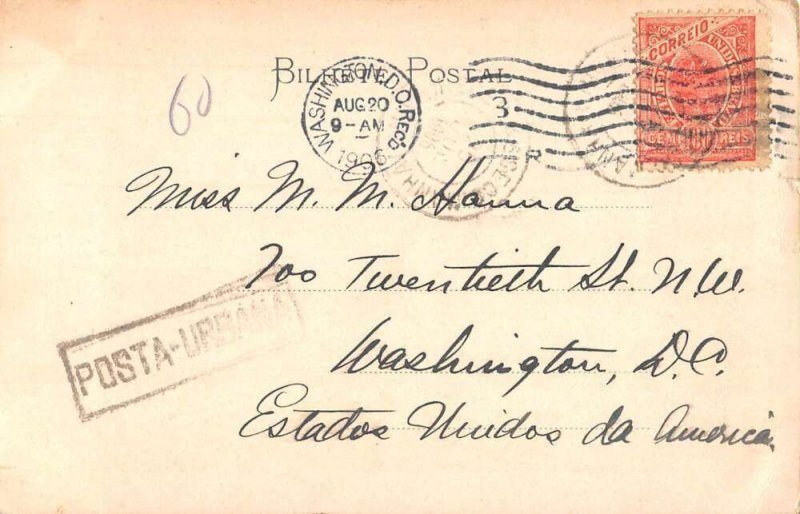 BILHETE POSTAL
60
WASHINGTON, D.C. REC'D
AUG 20
9-AM
1906
3
R
CORREIO
100 REIS
Miss M. M. Hanna
700 Twentieth St. N.W.
Washington, D.C.
Estados Unidos da America.
POSTA-URBANA